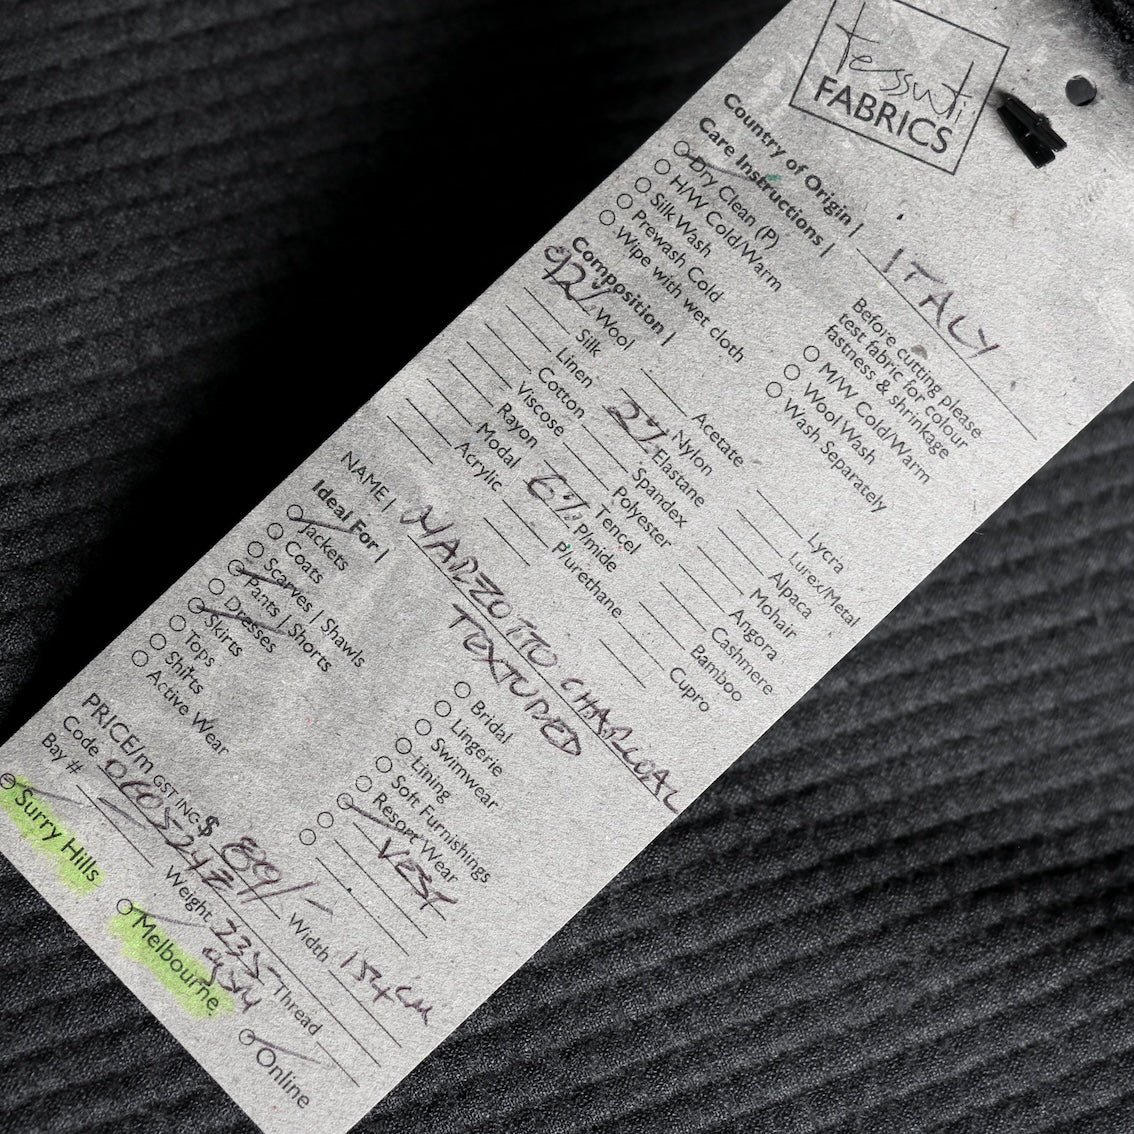 tessuti
FABRICS
Country of Origin | ITALY
Care Instructions |
Dry Clean (P)
H/W Cold/Warm
Silk Wash
Prewash Cold
Wipe with wet cloth
Before cutting please
test fabric for colour
fastness & shrinkage
M/W Cold/Warm
Wool Wash
Wash Separately
Composition |
92% Wool
Silk
Linen
Cotton
Viscose
Rayon
Modal
Acrylic
Acetate
Nylon
2% Elastane
Spandex
Polyester
Tencel
6% P/mide
P/urethane
Lycra
Lurex/Metal
Alpaca
Mohair
Angora
Cashmere
Bamboo
Cupro
NAME | MARZOTTO CHARCOAL
TEXTURED
Ideal For |
Jackets
Coats
Scarves | Shawls
Pants | Shorts
Dresses
Skirts
Tops
Shirts
Active Wear
Bridal
Lingerie
Swimwear
Lining
Soft Furnishings
Resort Wear
VEST
PRICE/m GST INC $ 89/-
Code
Bay #
Width 154cm
Weight 235
gsm
Thread
Surry Hills
Melbourne
Online